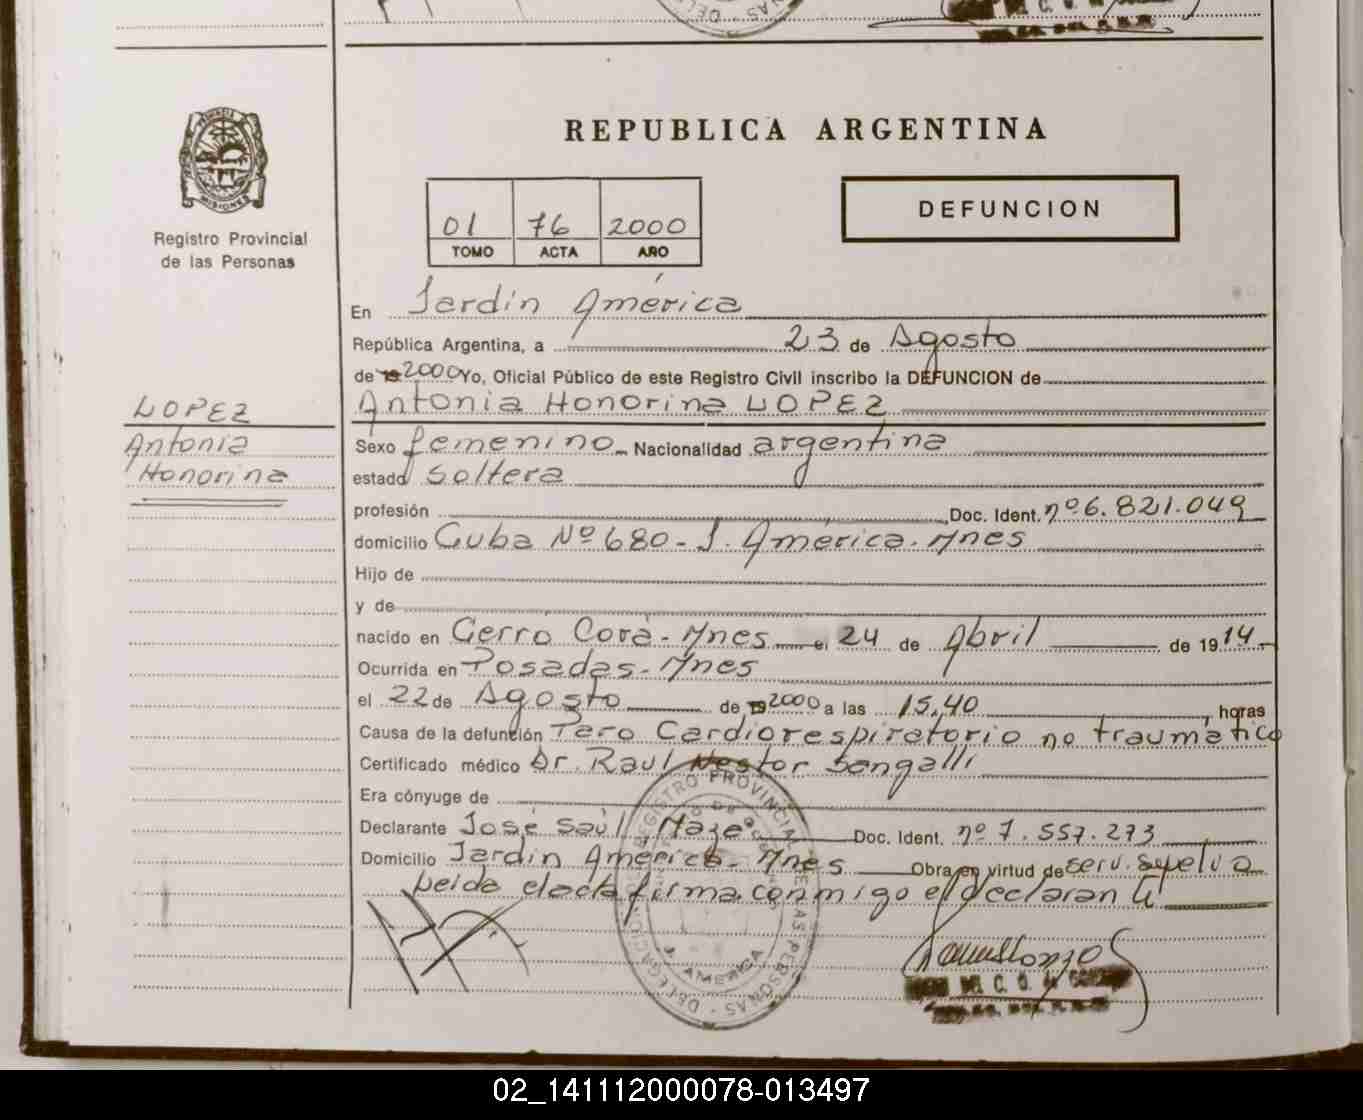 REPUBLICA ARGENTINA
MISIONES
Registro Provincial
de las Personas
01 76 2000
TOMO ACTA AÑO
DEFUNCION
En Jardín América
República Argentina, a 23 de Agosto
de 19 2000 Yo, Oficial Público de este Registro Civil inscribo la DEFUNCION de
Antonia Honorina LOPEZ
LOPEZ
Antonia
Honorina
Sexo femenino Nacionalidad argentina
estado Soltera
profesión Doc. Ident. nº 6.821.049
domicilio Cuba Nº 680 - J. América - Mnes
Hijo de
y de
nacido en Cerro Corá - Mnes el 24 de Abril de 1914
Ocurrida en Posadas - Mnes
el 22 de Agosto de 19 2000 a las 15,40 horas
Causa de la defunción Paro Cardiorespiratorio no traumático
Certificado médico Dr. Raúl Nestor Sangalli
Era cónyuge de
Declarante José Saúl Maze Doc. Ident. nº 7.557.273
Domicilio Jardín América - Mnes Obra en virtud de serv. sepelio
Leida el acta firma conmigo el declarante
REGISTRO PROVINCIAL DE LAS PERSONAS - DELEGACION
J. AMERICA
02_141112000078-013497